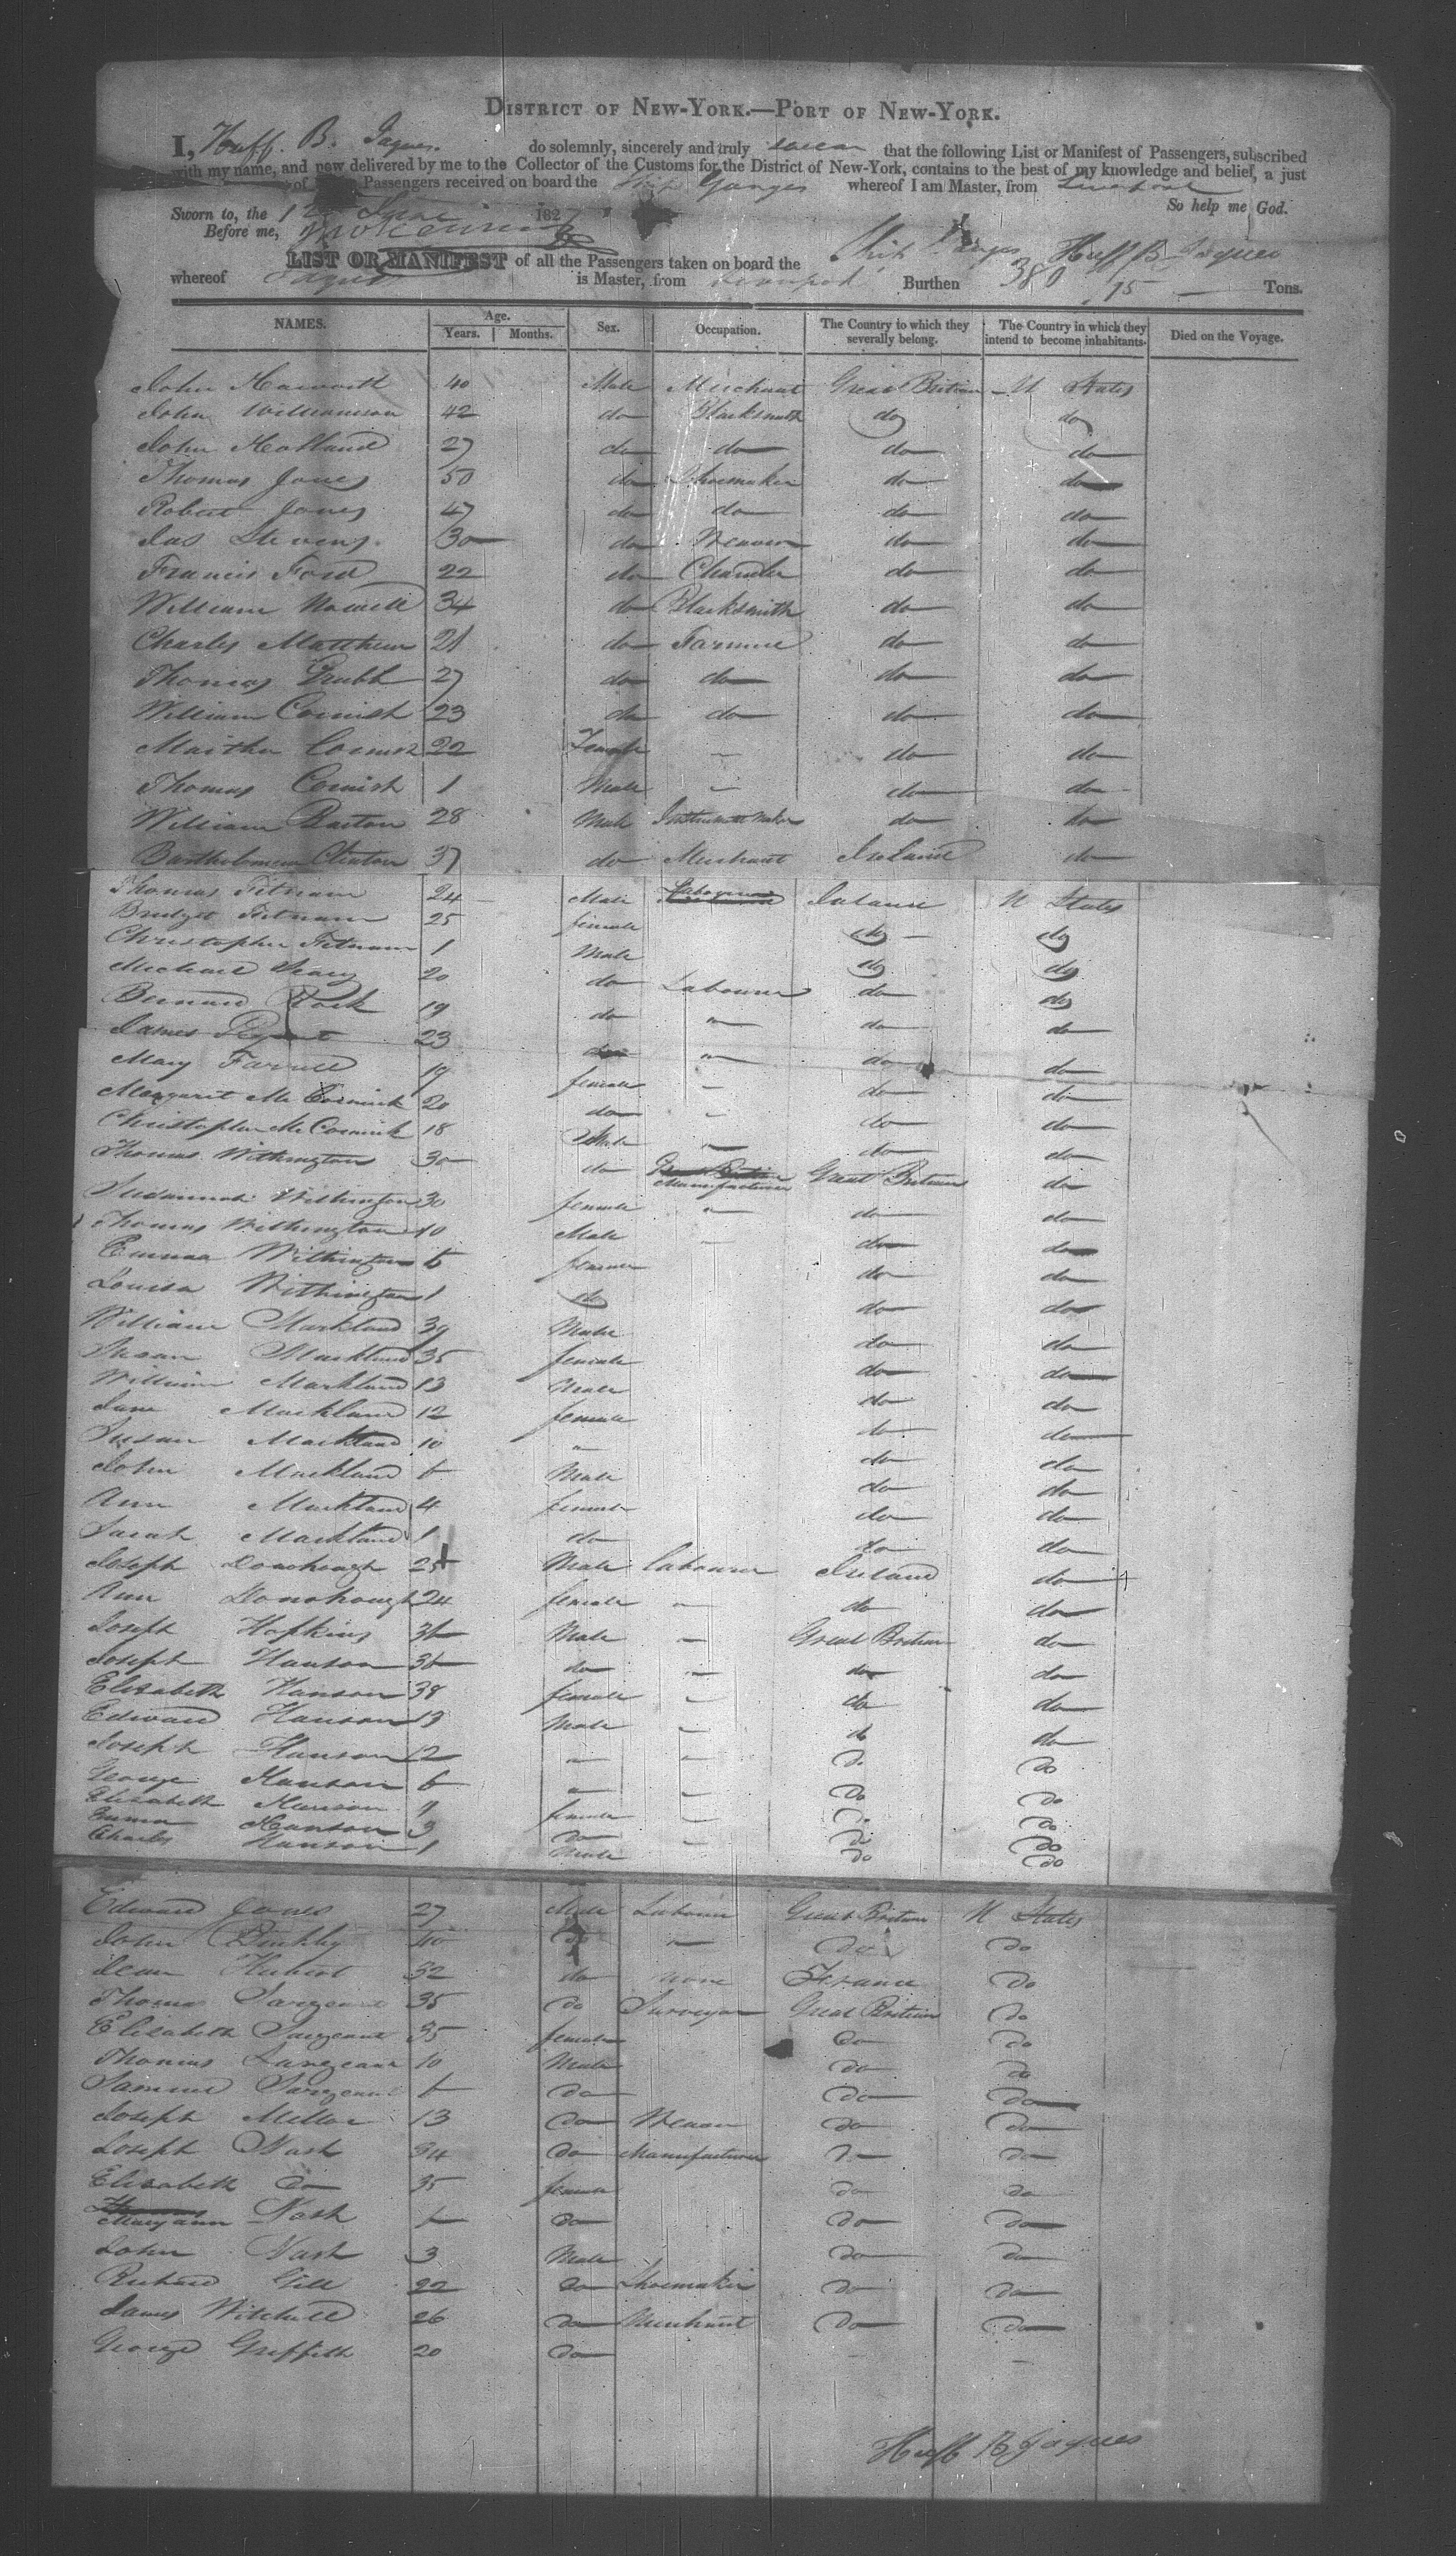 DISTRICT OF NEW-YORK.—PORT OF NEW-YORK.
I, Huff. B. Jaques. do solemnly, sincerely and truly swear that the following List or Manifest of Passengers, subscribed
with my name, and now delivered by me to the Collector of the Customs for the District of New-York, contains to the best of my knowledge and belief, a just
of Passengers received on board the Ship Ganges whereof I am Master, from Liverpool
Sworn to, the June 182 So help me God.
Before me,
LIST OR MANIFEST of all the Passengers taken on board the Ship Ganges Huff B Jaques
whereof Jaques is Master, from Liverpool Burthen 380 Tons.
NAMES. Age. Years. Months. Sex. Occupation. The Country to which they severally belong. The Country in which they intend to become inhabitants. Died on the Voyage.
John Haworth 40 Male Merchant Great Britian U States
John Williamson 42 do Blacksmith do do
John Holland 27 do do do do
Thomas Jones 50 do Shoemaker do do
Robert Jones 47 do do do do
Jas Stevens 30 do Weaver do do
Francis Ford 22 do Chandler do do
William Nowell 34 do Blacksmith do do
Charles Matthews 21 do Farmer do do
Thomas Grubb 27 do do do do
William Cornish 23 do do do do
Martha Cornish 22 Female do do
Thomas Cornish 1 Male do do
William Barton 28 Male Instrument Maker do do
Bartholomew Clinton 37 do Merchant Ireland do
Thomas Fitnam 24 Male Labourer Ireland U States
Bridget Fitnam 25 female do do
Christopher Fitnam 1 Male do do
Michael 20 do Labourer do do
Bernard Rock 19 do " do do
James 23 do " do do
Mary Farrell 19 female do do
Margaret McCormick 20 do do do
Christopher McCormick 18 Male do do
Thomas Withington 30 do Manufacturer Great Britian do
Susannah Withington 30 female do do
Thomas Withington 10 Male do do
Emma Withington 6 female do do
Louisa Withington 1 do do do
William Markland 39 Male do do
Susan Markland 35 female do do
William Markland 13 Male do do
Jane Markland 12 female do do
Susan Markland 10 " do do
John Markland 6 Male do do
Ann Markland 4 female do do
Sarah Markland 1 do do do
Joseph Donohough 25 Male Labourer Ireland do
Ann Donohough 24 female " do do
Joseph Hopkins 36 Male " Great Britian do
Joseph Hanson 36 do " do do
Elizabeth Hanson 38 female " do do
Edward Hanson 13 Male " do do
Joseph Hanson 12 " " do do
George Hanson 6 " " do do
Elizabeth Hanson female do do
Emma Hanson 3 do do do
Charles Hanson 1 Male do do
Edward Jones 27 Male Labourer Great Britian U States
John 40 do " do do
Jean Hubert 32 do none France do
Thomas Sargeant 35 do Surveyor Great Britian do
Elizabeth Sargeant 35 female do do
Thomas Sargeant 10 Male do do
Samuel Sargeant 6 do do do
Joseph Mellor 13 do Weaver do do
Joseph Nash 34 do Manufacturer do do
Elizabeth do 35 female do do
Mary ann Nash 6 do do do
John Nash 3 Male do do
Richard Gill 22 do Shoemaker do do
James Mitchell 26 do Merchant do do
George Griffith 20 do
Huff B Jaques